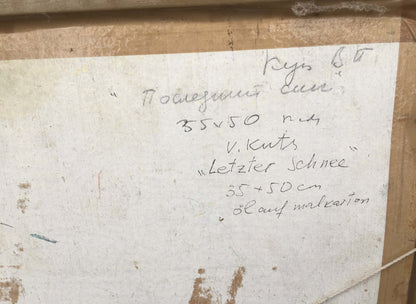 Куц В П
"Последний снег"
35×50 к.м
V. Kuts
„Letzter Schnee"
35 × 50 cm
öl auf malkarton